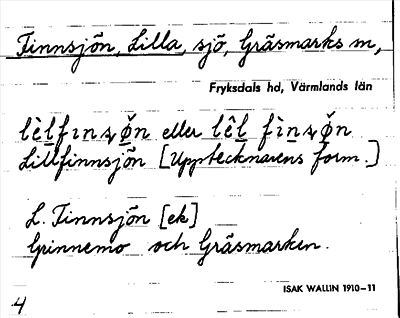 Finnsjön, Lilla, sjö, Gräsmarks sn,
Fryksdals hd, Värmlands län
eller
Lillfinnsjön [Upptecknarens form.]
L. Finnsjön [ek]
Grinnemo och Gräsmarken.
ISAK WALLIN 1910–11
4